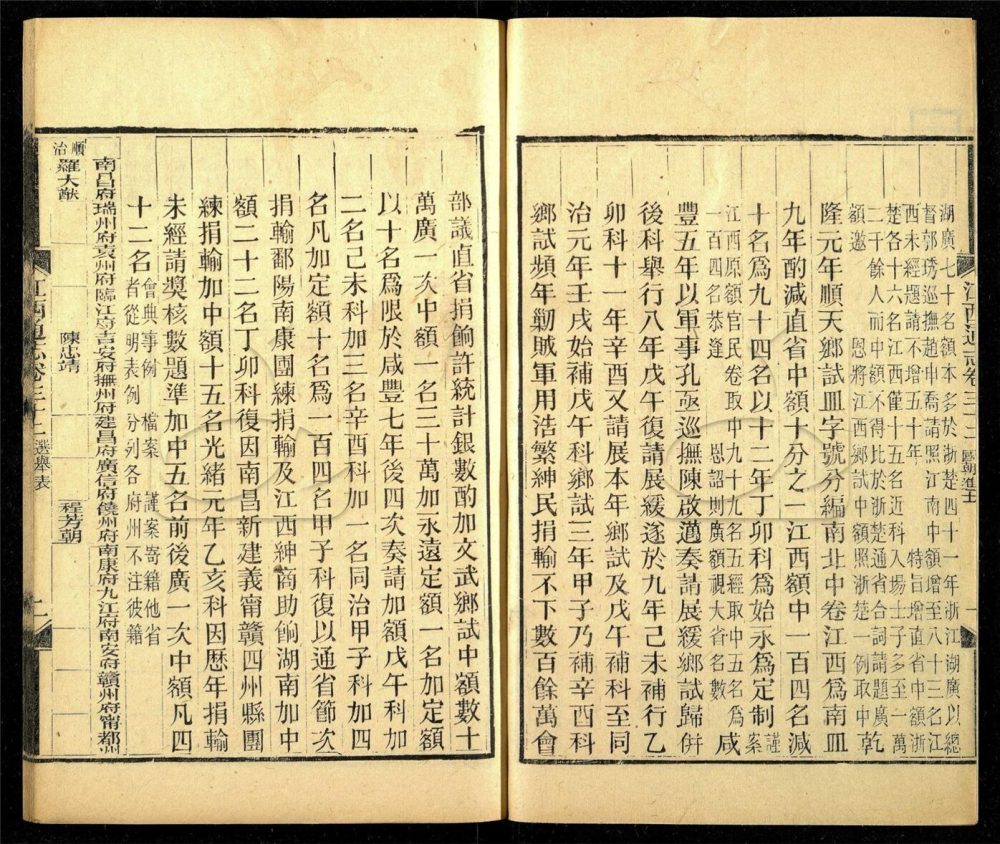 湖廣七十名額本多於浙楚四十一年浙江湖廣以總
督郭琇巡撫趙申喬請照江南中額增至八十三名江
西未經題請不增五十年 特旨增直省中額浙
楚各十六名江西僅十五名近科入場士子多至一萬
二千餘人而中額不得比於浙楚通省合詞請題廣
額邀 恩將江西鄉試中額照浙楚一例取中 乾
隆元年順天鄉試皿字號分編南北中卷江西爲南皿
九年酌減直省中額十分之一江西額中一百四名減
十名爲九十四名以十二年丁卯科爲始永爲定制 謹案
江西原額官民卷取中九十九名五經取中五名爲
一百四名恭逢 恩詔則廣額視大省名數 咸
豐五年以軍事孔亟巡撫陳啟邁奏請展緩鄉試歸併
後科舉行八年戊午復請展緩遂於九年己未補行乙
卯科十一年辛酉又請展本年鄉試及戊午補科至同
治元年壬戌始補戊午科鄉試三年甲子乃補辛酉科
鄉試頻年勦賊軍用浩繁紳民捐輸不下數百餘萬會
部議直省捐餉許統計銀數酌加文武鄉試中額數十
萬廣一次中額一名三十萬加永遠定額一名加定額
以十名爲限於咸豐七年後四次奏請加額戊午科加
二名己未科加三名辛酉科加一名同治甲子科加四
名凡加定額十名爲一百四名甲子科復以通省節次
捐輸鄱陽南康團練捐輸及江西紳商助餉湖南加中
額二十二名丁卯科復因南昌新建義甯贛四州縣團
練捐輸加中額十五名光緒元年乙亥科因歷年捐輸
未經請獎核數題準加中五名前後廣一次中額凡四
十二名 會典事例 檔案 謹案寄籍他省
者從明表例分列各府州不注彼籍
南昌府瑞州府袁州府臨江府吉安府撫州府建昌府廣信府饒州府南康府九江府南安府贛州府甯都州
順治
羅大猷
陳忠靖
程芳朝
江西通志卷三十二 選舉表 二